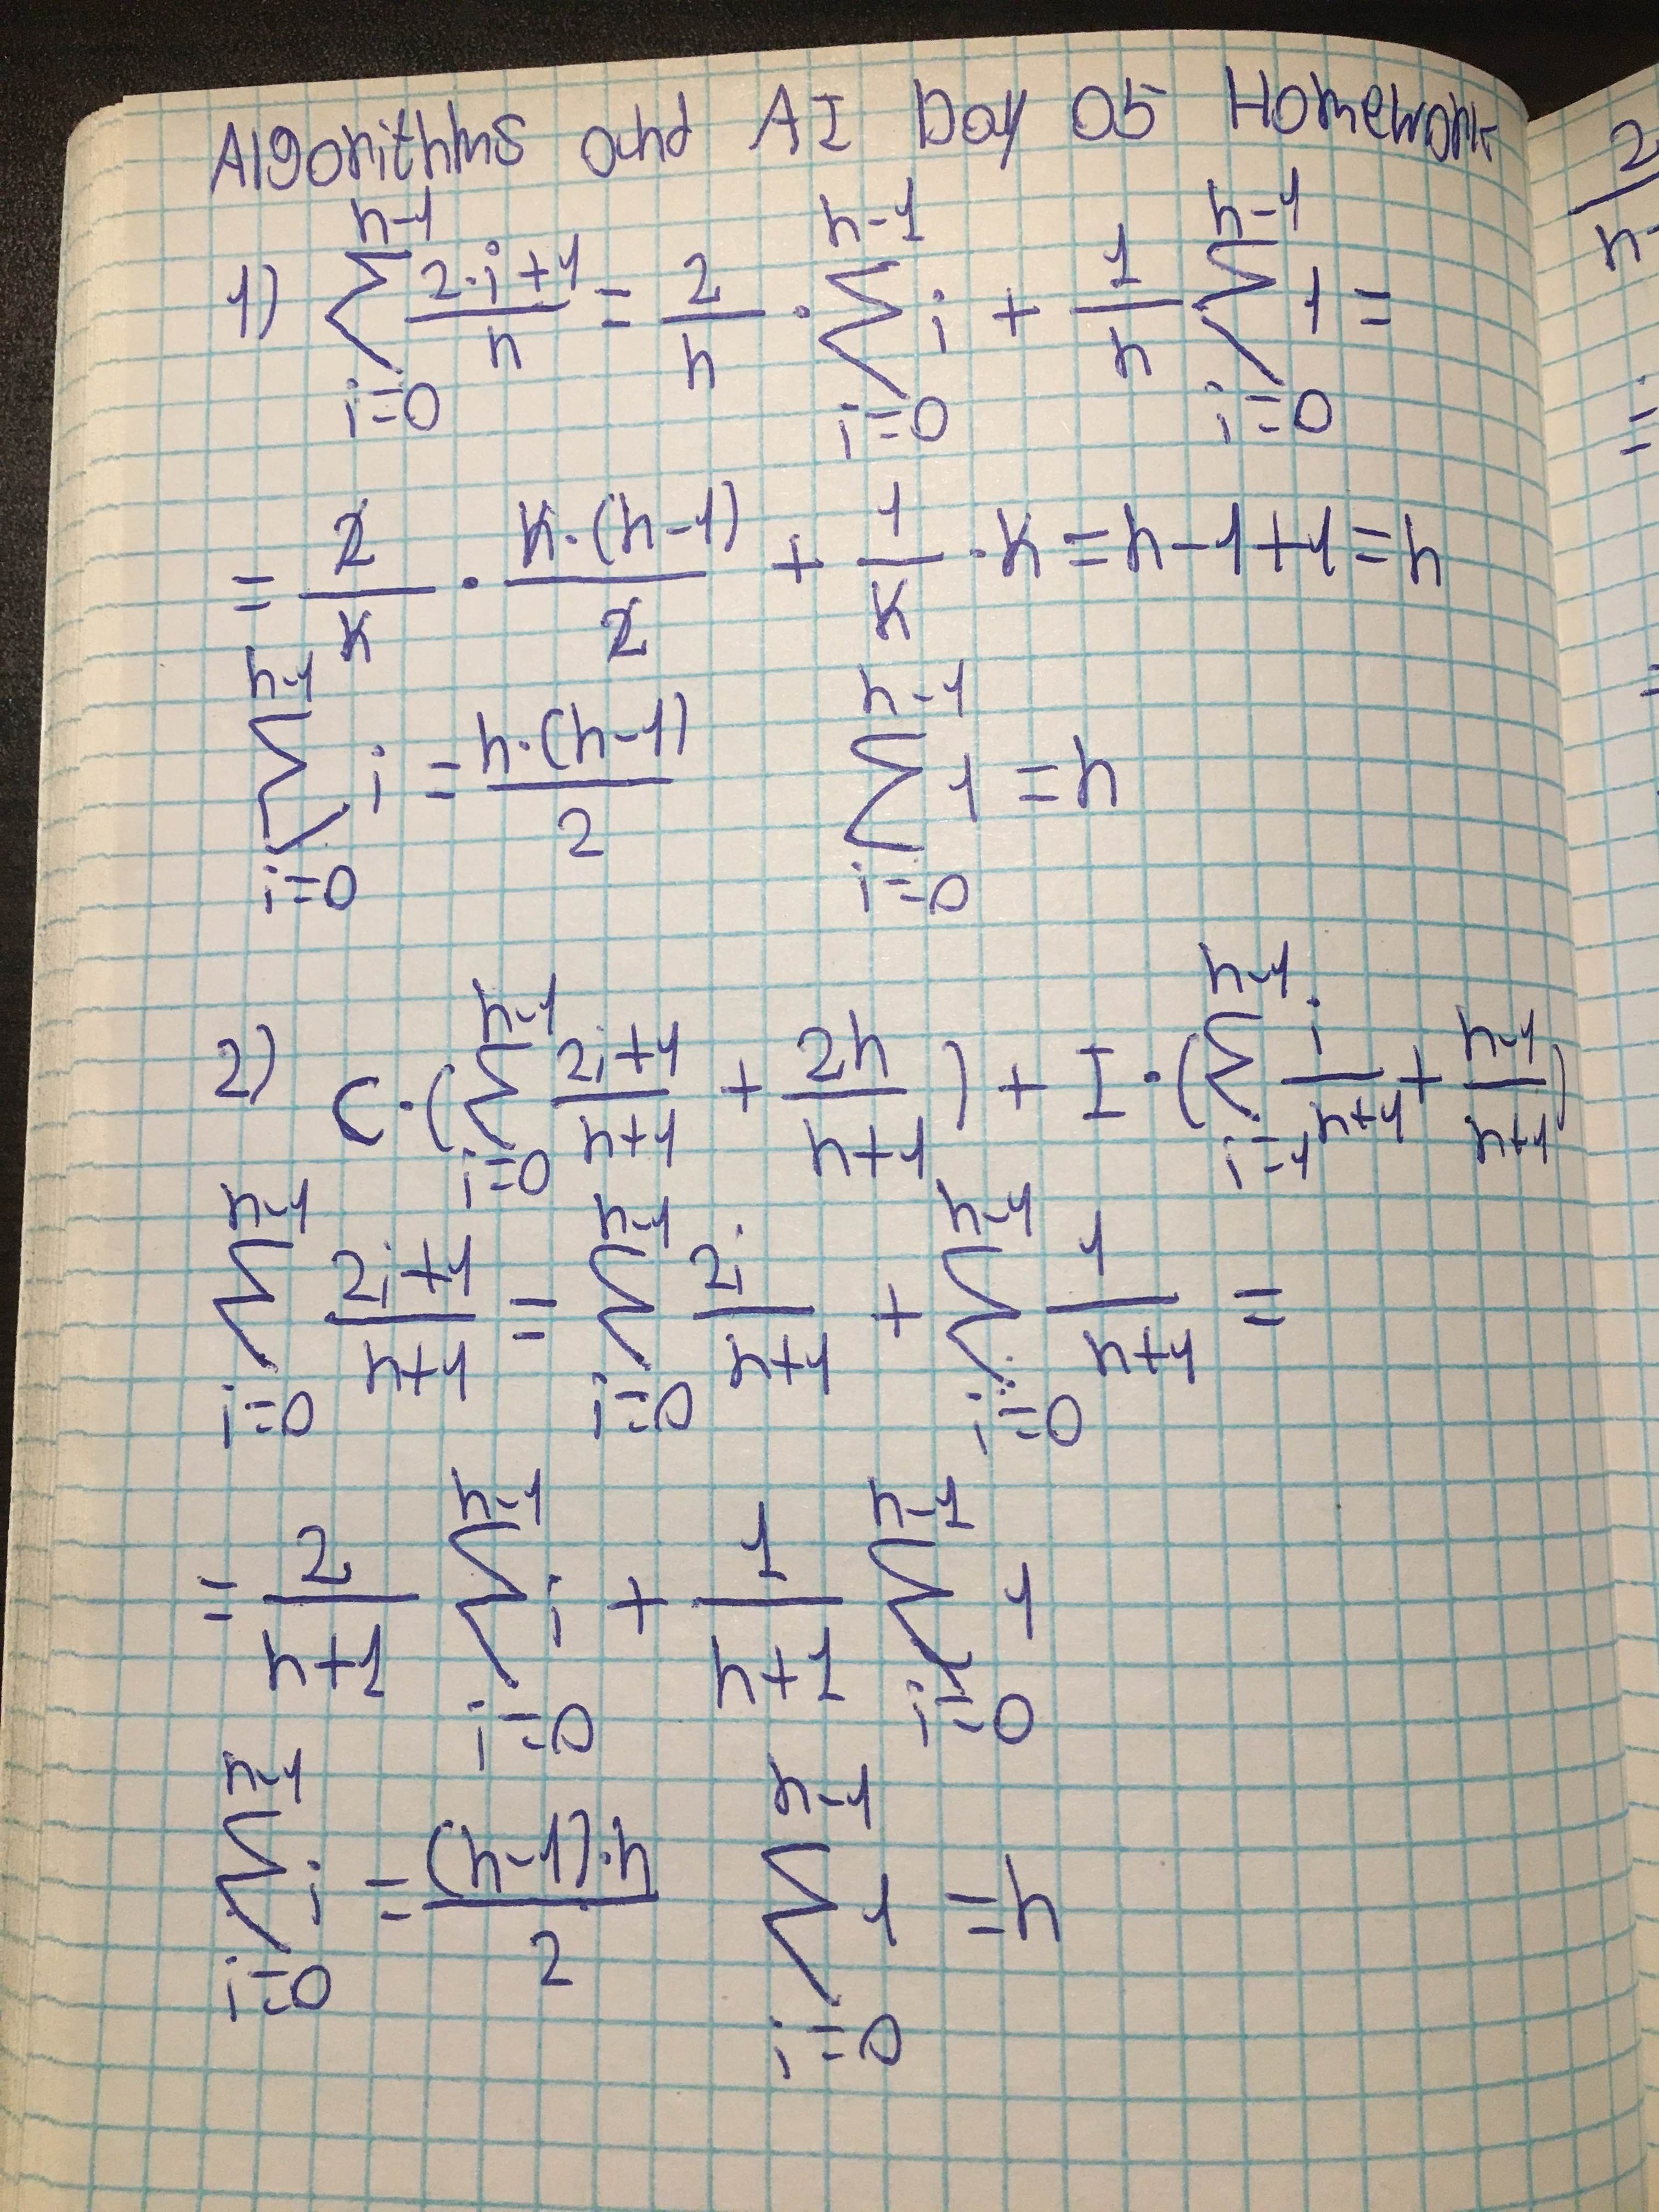 Algorithms and AI Day 05 Homework
1) \sum_{i=0}^{n-1} \frac{2 \cdot i + 1}{n} = \frac{2}{n} \cdot \sum_{i=0}^{n-1} i + \frac{1}{n} \sum_{i=0}^{n-1} 1 =
= \frac{2}{n} \cdot \frac{n \cdot (n-1)}{2} + \frac{1}{n} \cdot n = n - 1 + 1 = n
\sum_{i=0}^{n-1} i = \frac{n \cdot (n-1)}{2} \sum_{i=0}^{n-1} 1 = n
2) C \cdot ( \sum_{i=0}^{n-1} \frac{2i+1}{n+1} + \frac{2n}{n+1} ) + I \cdot ( \sum_{i=1}^{n-1} \frac{i}{n+1} + \frac{n-1}{n+1} )
\sum_{i=0}^{n-1} \frac{2i+1}{n+1} = \sum_{i=0}^{n-1} \frac{2i}{n+1} + \sum_{i=0}^{n-1} \frac{1}{n+1} =
= \frac{2}{n+1} \sum_{i=0}^{n-1} i + \frac{1}{n+1} \sum_{i=0}^{n-1} 1
\sum_{i=0}^{n-1} i = \frac{(n-1) \cdot n}{2} \sum_{i=0}^{n-1} 1 = n